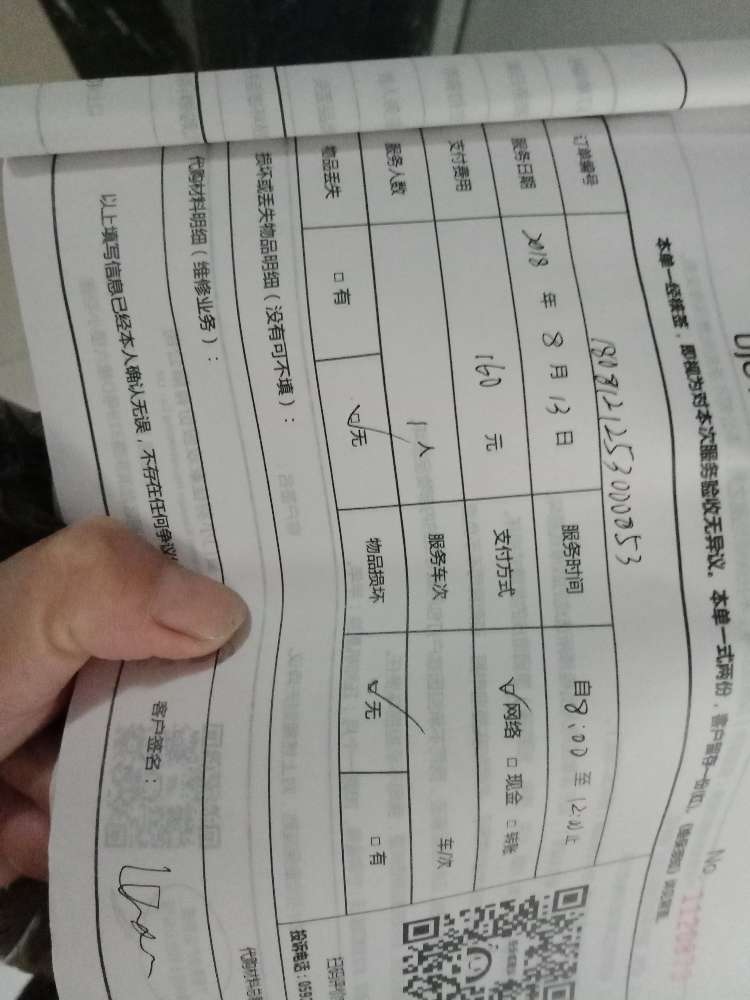 本单一经核签，即视为对本次服务验收无异议。本单一式两份，客户留存一份
No
订单编号 180812125300053
服务日期 2018 年 8 月 13 日 服务时间 自 8:00 至 12:00 止
支付费用 160 元 支付方式 ☑网络 □现金 □转账
服务人数 1 人 服务车次 车/次
物品丢失 □有 ☑无 物品损坏 ☑无 □有
损坏或丢失物品明细（没有可不填）：
代购材料明细（维修业务）：
以上填写信息已经本人确认无误，不存在任何争议
客户签名：
投诉电话：059